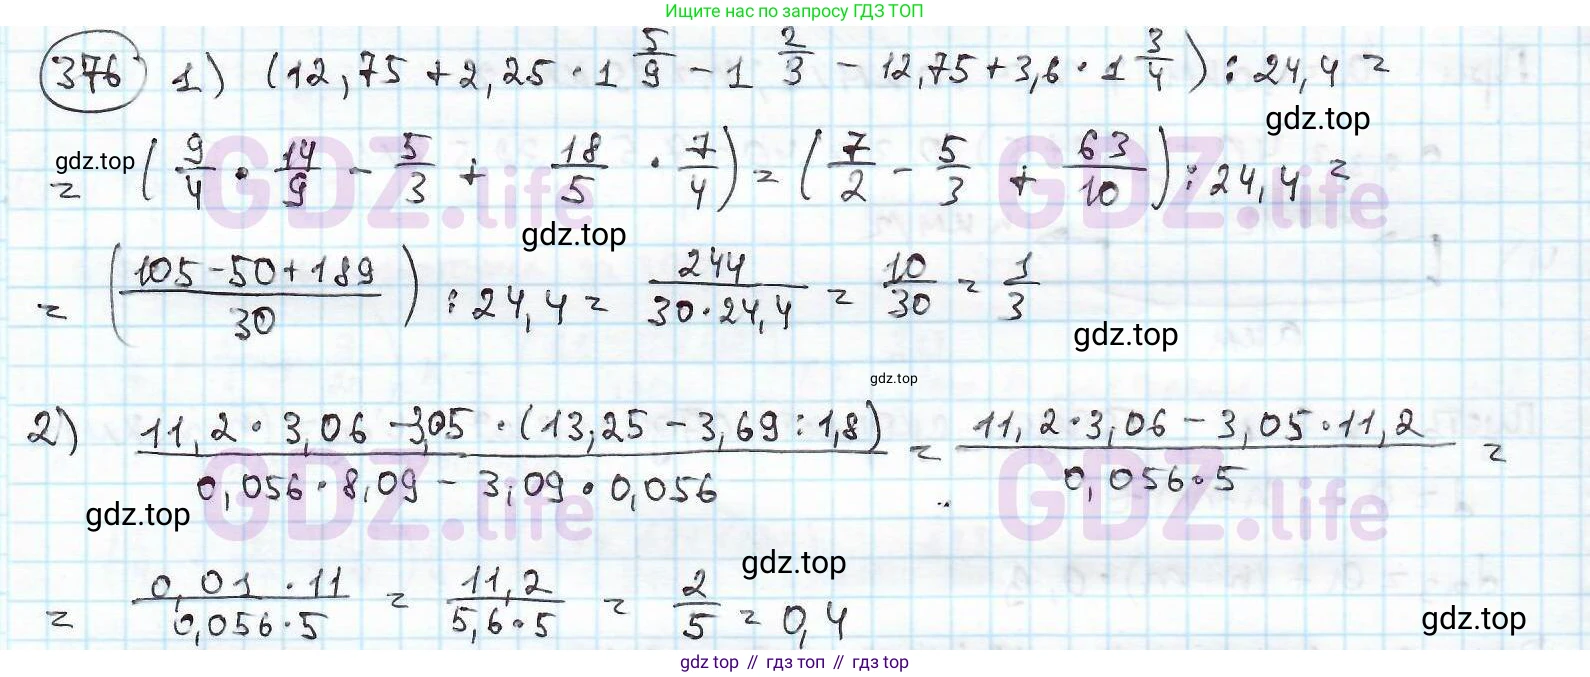 Ищите нас по запросу ГДЗ ТОП
376 1) (12,75 + 2,25 · 1 5/9 - 1 2/3 - 12,75 + 3,6 · 1 3/4) : 24,4 =
gdz.top
gdz.top
= (9/4 · 14/9 - 5/3 + 18/5 · 7/4) = (7/2 - 5/3 + 63/10) : 24,4 =
GDZ.life GDZ.life
gdz.top
= ((105 - 50 + 189)/30) : 24,4 = 244/(30 · 24,4) = 10/30 = 1/3
gdz.top
gdz.top
2) (11,2 · 3,06 - 3,05 · (13,25 - 3,69 : 1,8))/(0,056 · 8,09 - 3,09 · 0,056) = (11,2 · 3,06 - 3,05 · 11,2)/(0,056 · 5) =
GDZ.life GDZ.life
gdz.top
gdz.top
= (0,01 · 11)/(0,056 · 5) = 11,2/(5,6 · 5) = 2/5 = 0,4
gdz.top
gdz top // гдз топ // гдз top